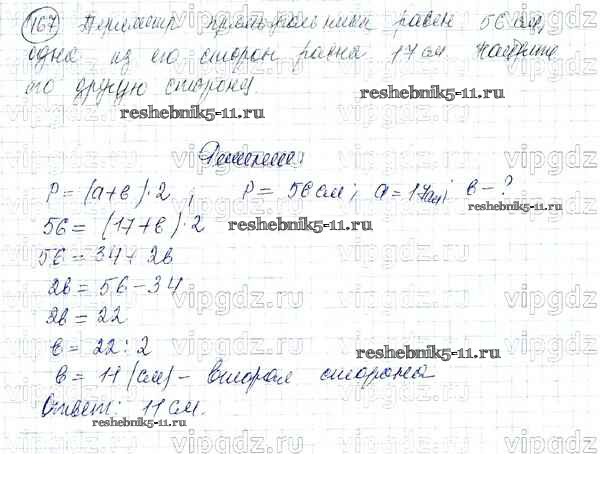 167 Периметр прямоугольника равен 56 см,
одна из его сторон равна 17 см. Найдите
его другую сторону.
reshebnik5-11.ru
reshebnik5-11.ru
vipgdz.ru vipgdz.ru vipgdz.ru
Решение:
P = (a+в)·2 ; P = 56 см; a = 17см; в - ?
reshebnik5-11.ru
56 = (17+в)·2
reshebnik5-11.ru
56 = 34 + 2в
2в = 56 - 34
vipgdz.ru vipgdz.ru vipgdz.ru
2в = 22
в = 22 : 2
reshebnik5-11.ru
в = 11 (см) - вторая сторона
vipgdz.ru vipgdz.ru vipgdz.ru
Ответ: 11 см.
reshebnik5-11.ru
vipgdz.ru vipgdz.ru vipgdz.ru